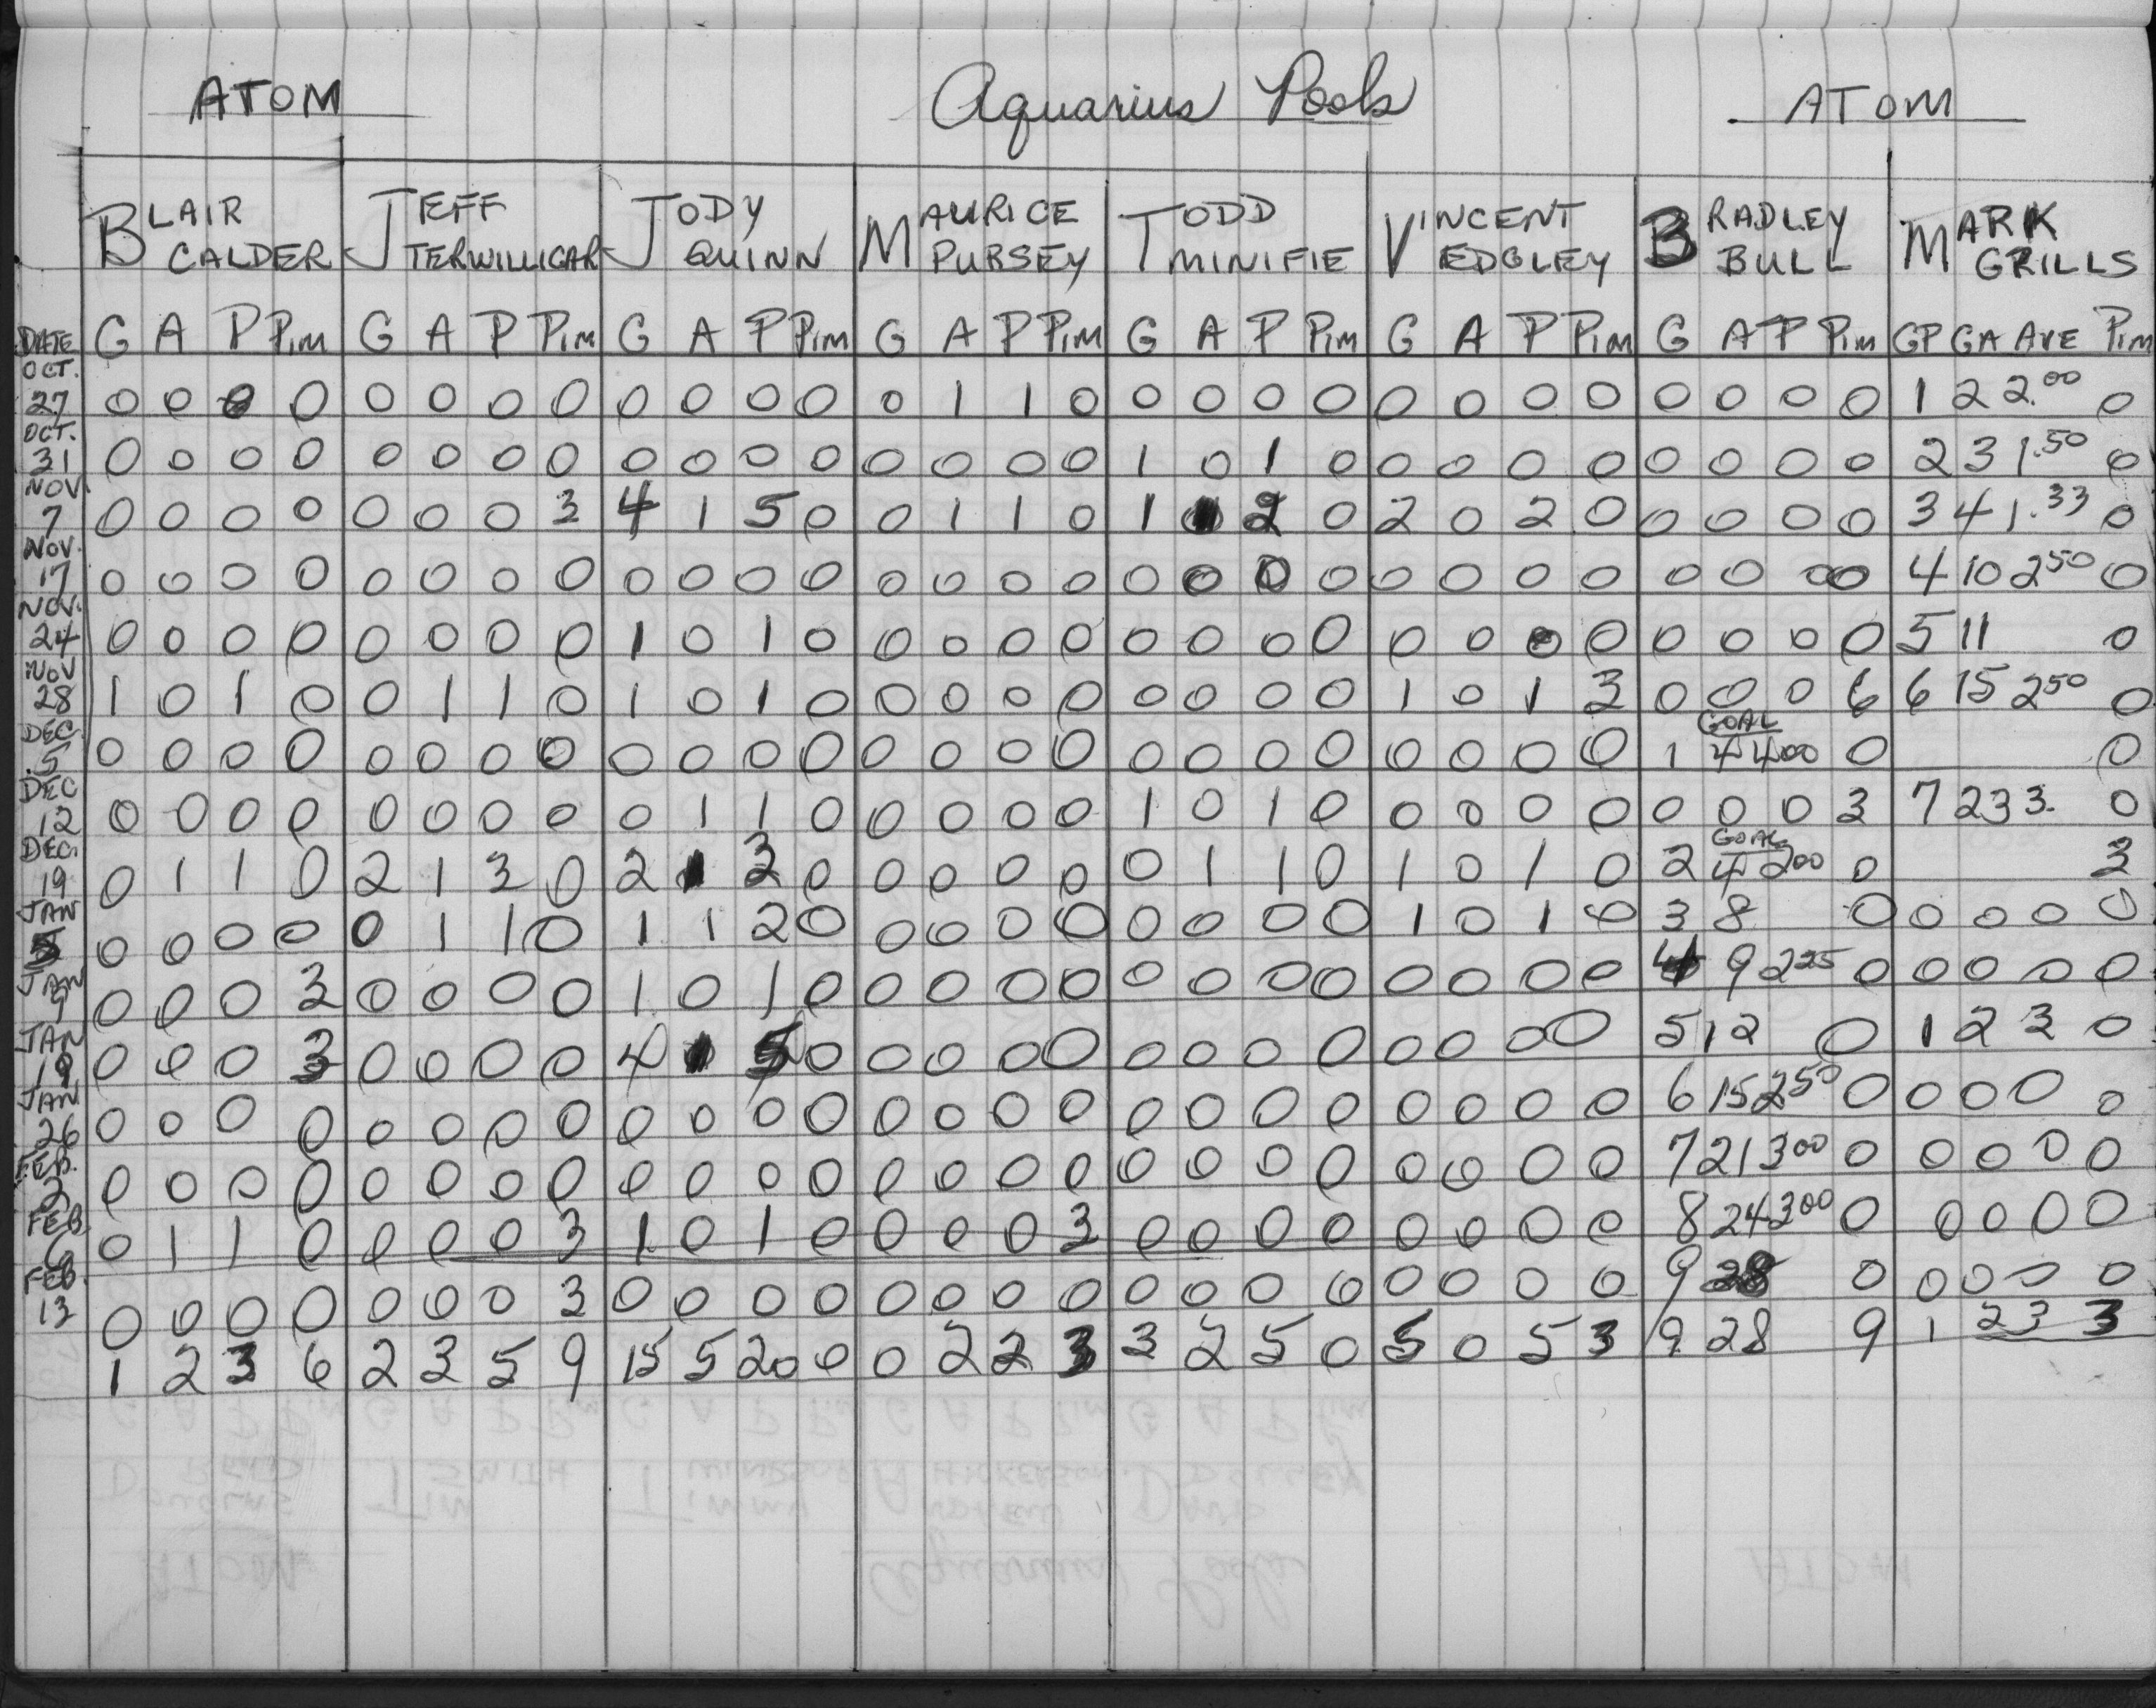 ATOM Aquarius Pools ATOM
BLAIR CALDER JEFF TERWILLIGAR JODY QUINN MAURICE PURSEY TODD MINIFIE VINCENT EDGLEY BRADLEY BULL MARK GRILLS
DATE G A P Pim G A P Pim G A P Pim G A P Pim G A P Pim G A P Pim G A P Pim GP GA AVE Pim
OCT. 27 0 0 0 0 0 0 0 0 0 0 0 0 0 1 1 0 0 0 0 0 0 0 0 0 0 0 0 0 1 2 2.00 0
OCT. 31 0 0 0 0 0 0 0 0 0 0 0 0 0 0 0 0 1 0 1 0 0 0 0 0 0 0 0 0 2 3 1.50 0
NOV. 7 0 0 0 0 0 0 0 3 4 1 5 0 0 1 1 0 1 1 2 0 2 0 2 0 0 0 0 0 3 4 1.33 0
NOV. 17 0 0 0 0 0 0 0 0 0 0 0 0 0 0 0 0 0 0 0 0 0 0 0 0 0 0 0 0 4 10 250 0
NOV. 24 0 0 0 0 0 0 0 0 1 0 1 0 0 0 0 0 0 0 0 0 0 0 0 0 0 0 0 0 5 11 0
NOV 28 1 0 1 0 0 1 1 0 1 0 1 0 0 0 0 0 0 0 0 0 1 0 1 3 0 0 0 6 6 15 250 0
DEC. 5 0 0 0 0 0 0 0 0 0 0 0 0 0 0 0 0 0 0 0 0 0 0 0 0 1 GOAL 4 400 0 0
DEC 12 0 0 0 0 0 0 0 0 0 1 1 0 0 0 0 0 1 0 1 0 0 0 0 0 0 0 0 3 7 23 3. 0
DEC. 19 0 1 1 0 2 1 3 0 2 1 3 0 0 0 0 0 0 1 1 0 1 0 1 0 2 GOAL 4 200 0 3
JAN 5 0 0 0 0 0 1 1 0 1 1 2 0 0 0 0 0 0 0 0 0 1 0 1 0 3 8 0 0 0 0 0
JAN 9 0 0 0 3 0 0 0 0 1 0 1 0 0 0 0 0 0 0 0 0 0 0 0 0 4 9 225 0 0 0 0 0
JAN 19 0 0 0 3 0 0 0 0 4 1 5 0 0 0 0 0 0 0 0 0 0 0 0 0 5 12 0 1 23 0
JAN. 26 0 0 0 0 0 0 0 0 0 0 0 0 0 0 0 0 0 0 0 0 0 0 0 0 6 15 250 0 0 0 0 0
FEB. 2 0 0 0 0 0 0 0 0 0 0 0 0 0 0 0 0 0 0 0 0 0 0 0 0 7 21 300 0 0 0 0 0
FEB 6 0 1 1 0 0 0 0 3 1 0 1 0 0 0 0 3 0 0 0 0 0 0 0 0 8 24 300 0 0 0 0 0
FEB. 13 0 0 0 0 0 0 0 3 0 0 0 0 0 0 0 0 0 0 0 0 0 0 0 0 9 28 0 0 0 0 0
1 2 3 6 2 3 5 9 15 5 20 0 0 2 2 3 3 2 5 0 5 0 5 3 9 28 9 1 23 3